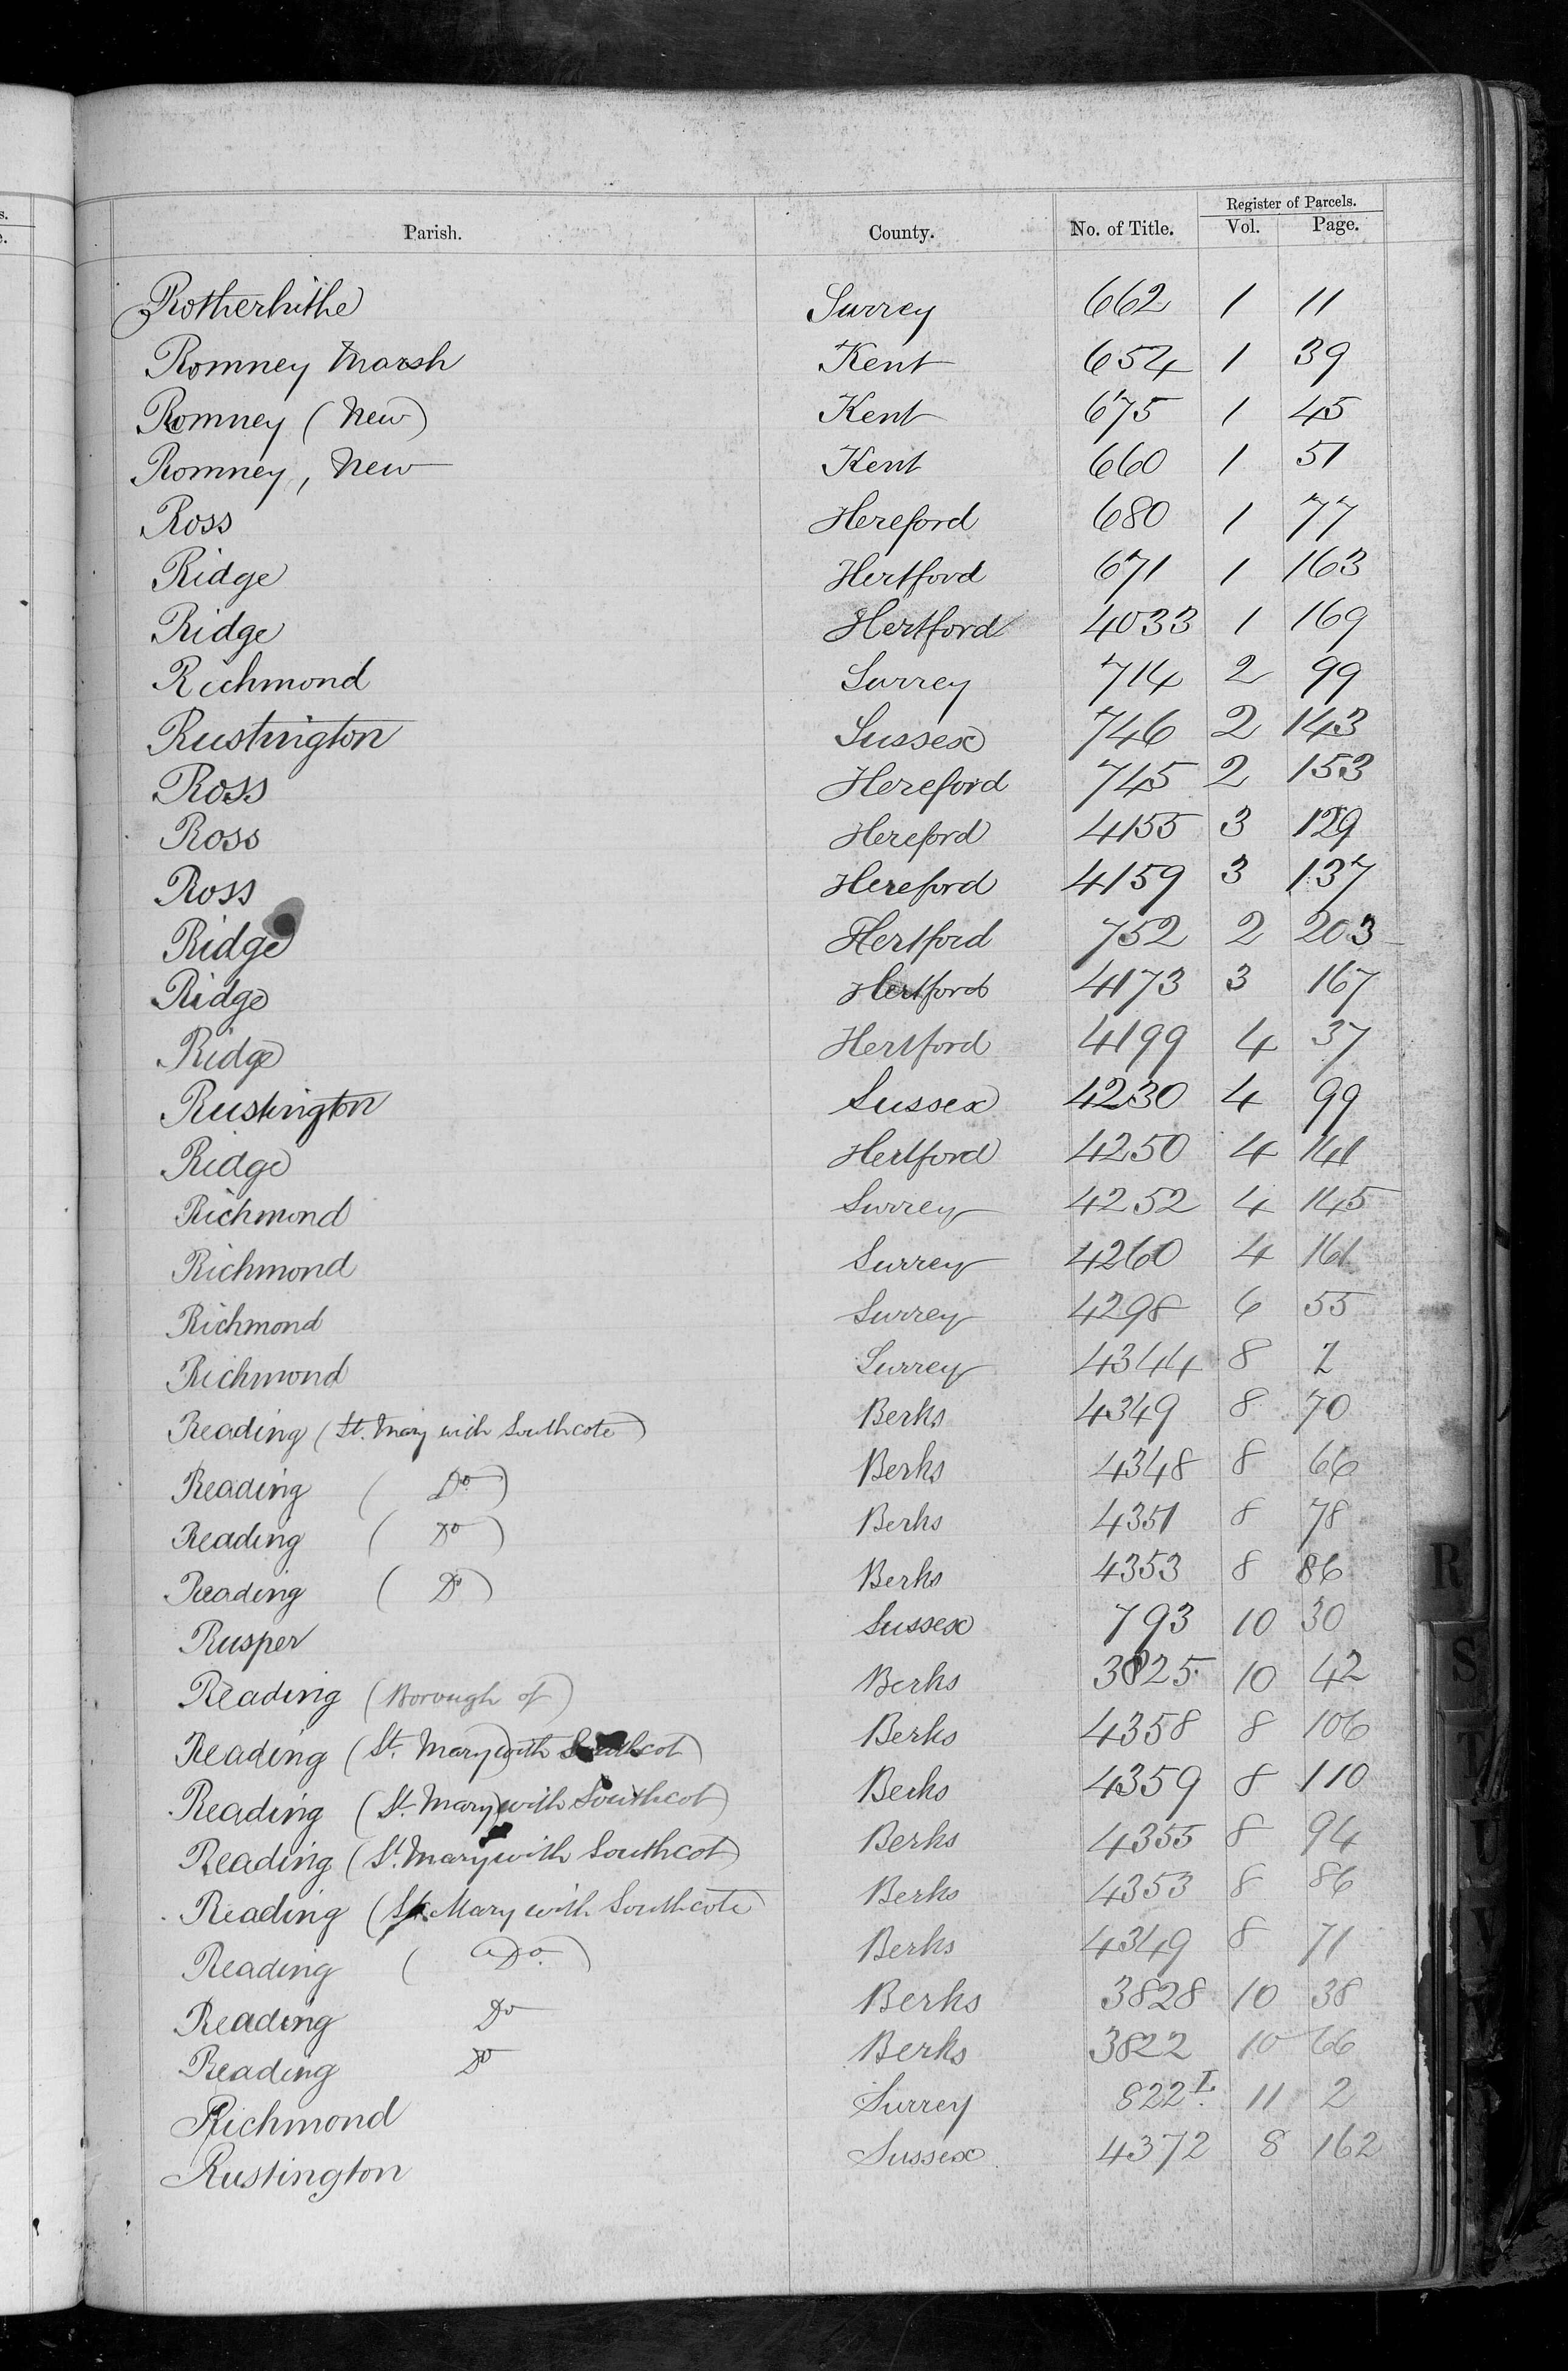 s.
e.
Register of Parcels.
Parish. County. No. of Title. Vol. Page.
Rotherhithe Surrey 662 1 11
Romney Marsh Kent 654 1 39
Romney (New) Kent 675 1 45
Romney, New Kent 660 1 51
Ross Hereford 680 1 77
Ridge Hertford 671 1 163
Ridge Hertford 4033 1 169
Richmond Surrey 714 2 99
Rustington Sussex 746 2 143
Ross Hereford 745 2 153
Ross Hereford 4155 3 129
Ross Hereford 4159 3 137
Ridge Hertford 752 2 203
Ridge Hertford 4173 3 167
Ridge Hertford 4199 4 37
Rustington Sussex 4230 4 99
Ridge Hertford 4250 4 141
Richmond Surrey 4252 4 145
Richmond Surrey 4260 4 161
Richmond Surrey 4298 6 55
Richmond Surrey 4344 8
Reading (St. Mary with Southcote) Berks 4349 8 70
Reading (Do) Berks 4348 8 66
Reading (Do) Berks 4351 8 78
Reading (Do) Berks 4353 8 86
Rusper Sussex 793 10 30
Reading (Borough of) Berks 3825 10 42
Reading (St. Mary) with Southcot) Berks 4358 8 106
Reading (St. Mary) with Southcot) Berks 4359 8 110
Reading (St. Mary with Southcot) Berks 4355 8 94
Reading (St. Mary with Southcote) Berks 4353 8 86
Reading (Do.) Berks 4349 8 71
Reading Do Berks 3828 10 38
Reading Do Berks 3822 10 66
Richmond Surrey 822 I. 11 2
Rustington Sussex 4372 8 162
R
S
T
U
V
W